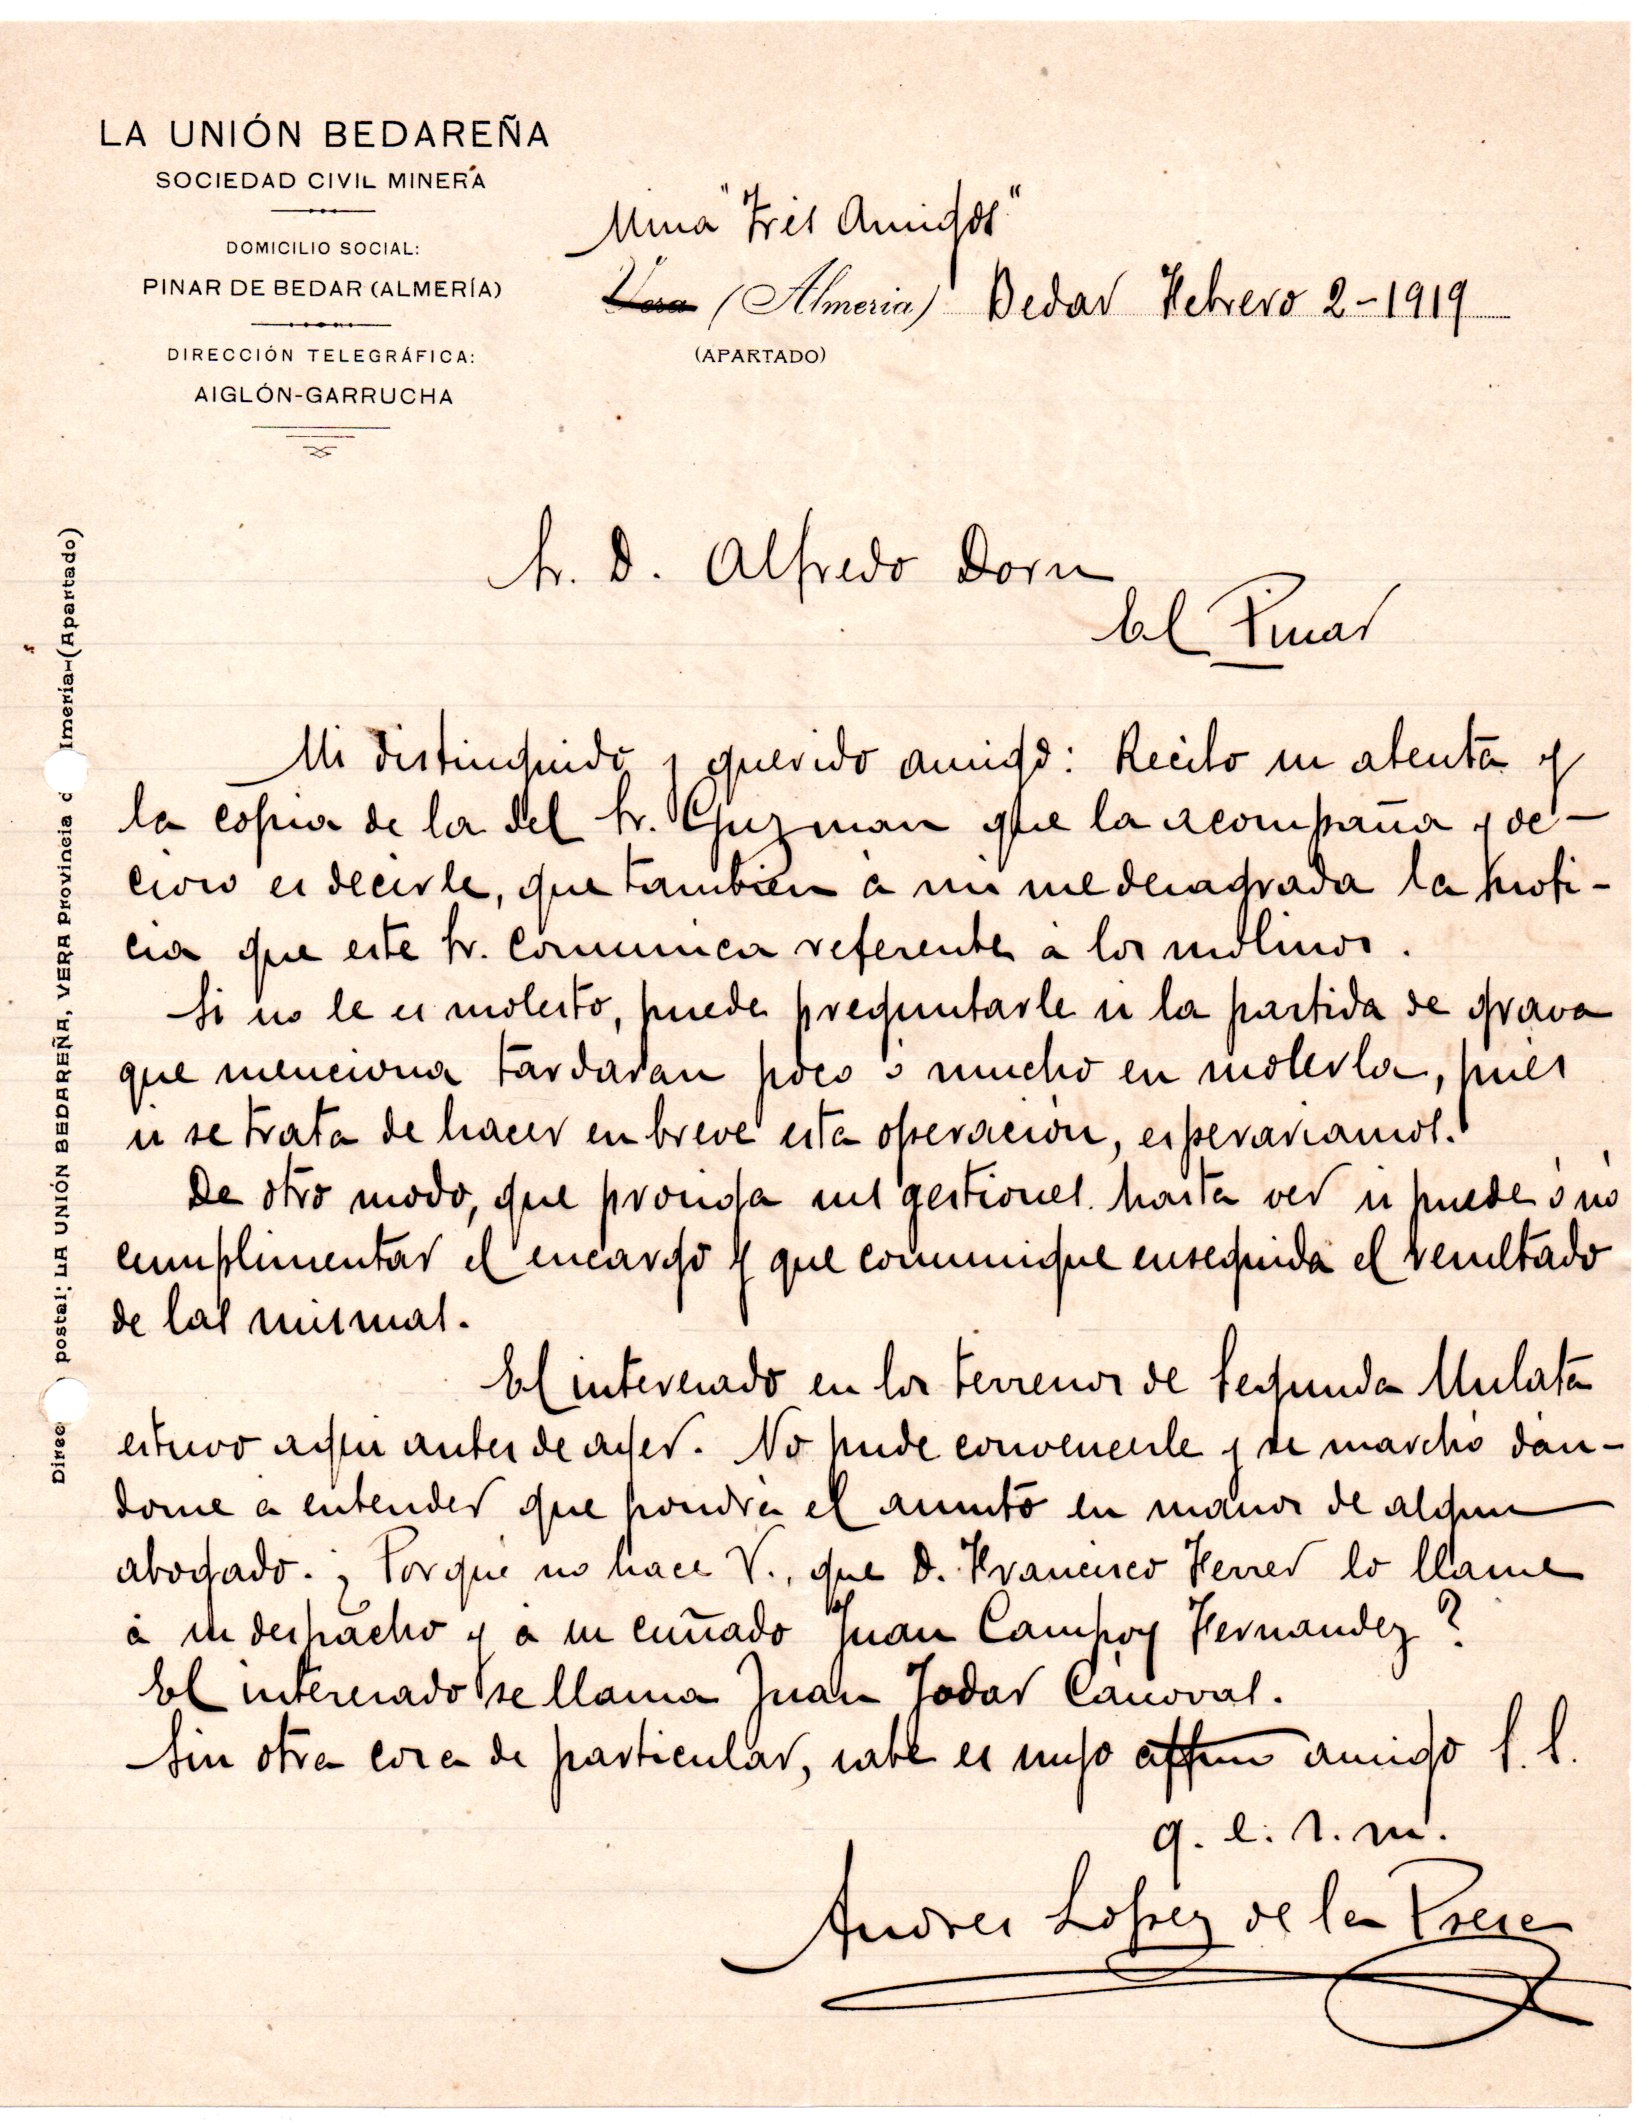 LA UNIÓN BEDAREÑA
SOCIEDAD CIVIL MINERA
DOMICILIO SOCIAL:
PINAR DE BEDAR (ALMERÍA)
DIRECCIÓN TELEGRÁFICA:
AIGLÓN-GARRUCHA
Mina "Tres Amigos"
Vera (Almeria) Bedar Febrero 2-1919
(APARTADO)
Direc postal: LA UNIÓN BEDAREÑA, VERA Provincia d lmería-(Apartado)
Sr. D. Alfredo Dorn
El Pinar
Mi distinguido y querido amigo: Recibo su atenta y
la copia de la del Sr. Guzman que la acompaña y de-
cioro es decirle, que tambien á mi me desagrada la noti-
cia que este Sr. comunica referente á los molinos.
Si no le es molesto, puede preguntarle si la partida de grava
que menciona tardaran poco ó mucho en molerla, pues
si se trata de hacer en breve esta operación, esperariamos.
De otro modo, que prosiga sus gestiones hasta ver si puede ó nó
cumplimentar el encargo y que comunique enseguida el resultado
de las mismas.
El interesado en los terrenos de Segunda Mulata
estuvo aqui antes de ayer. No pude convencerle y se marchó dán-
dome á entender que pondrá el asunto en manos de algun
abogado. ¿Porqué no hace V., que D. Francisco Ferrer lo llame
á su despacho y á su cuñado Juan Campoy Fernandez?
El interesado se llama Juan Jodar Cánoval.
Sin otra cosa de particular, sabe es suyo affmo amigo S. S.
q. e. s. m.
Andres López de la Presa